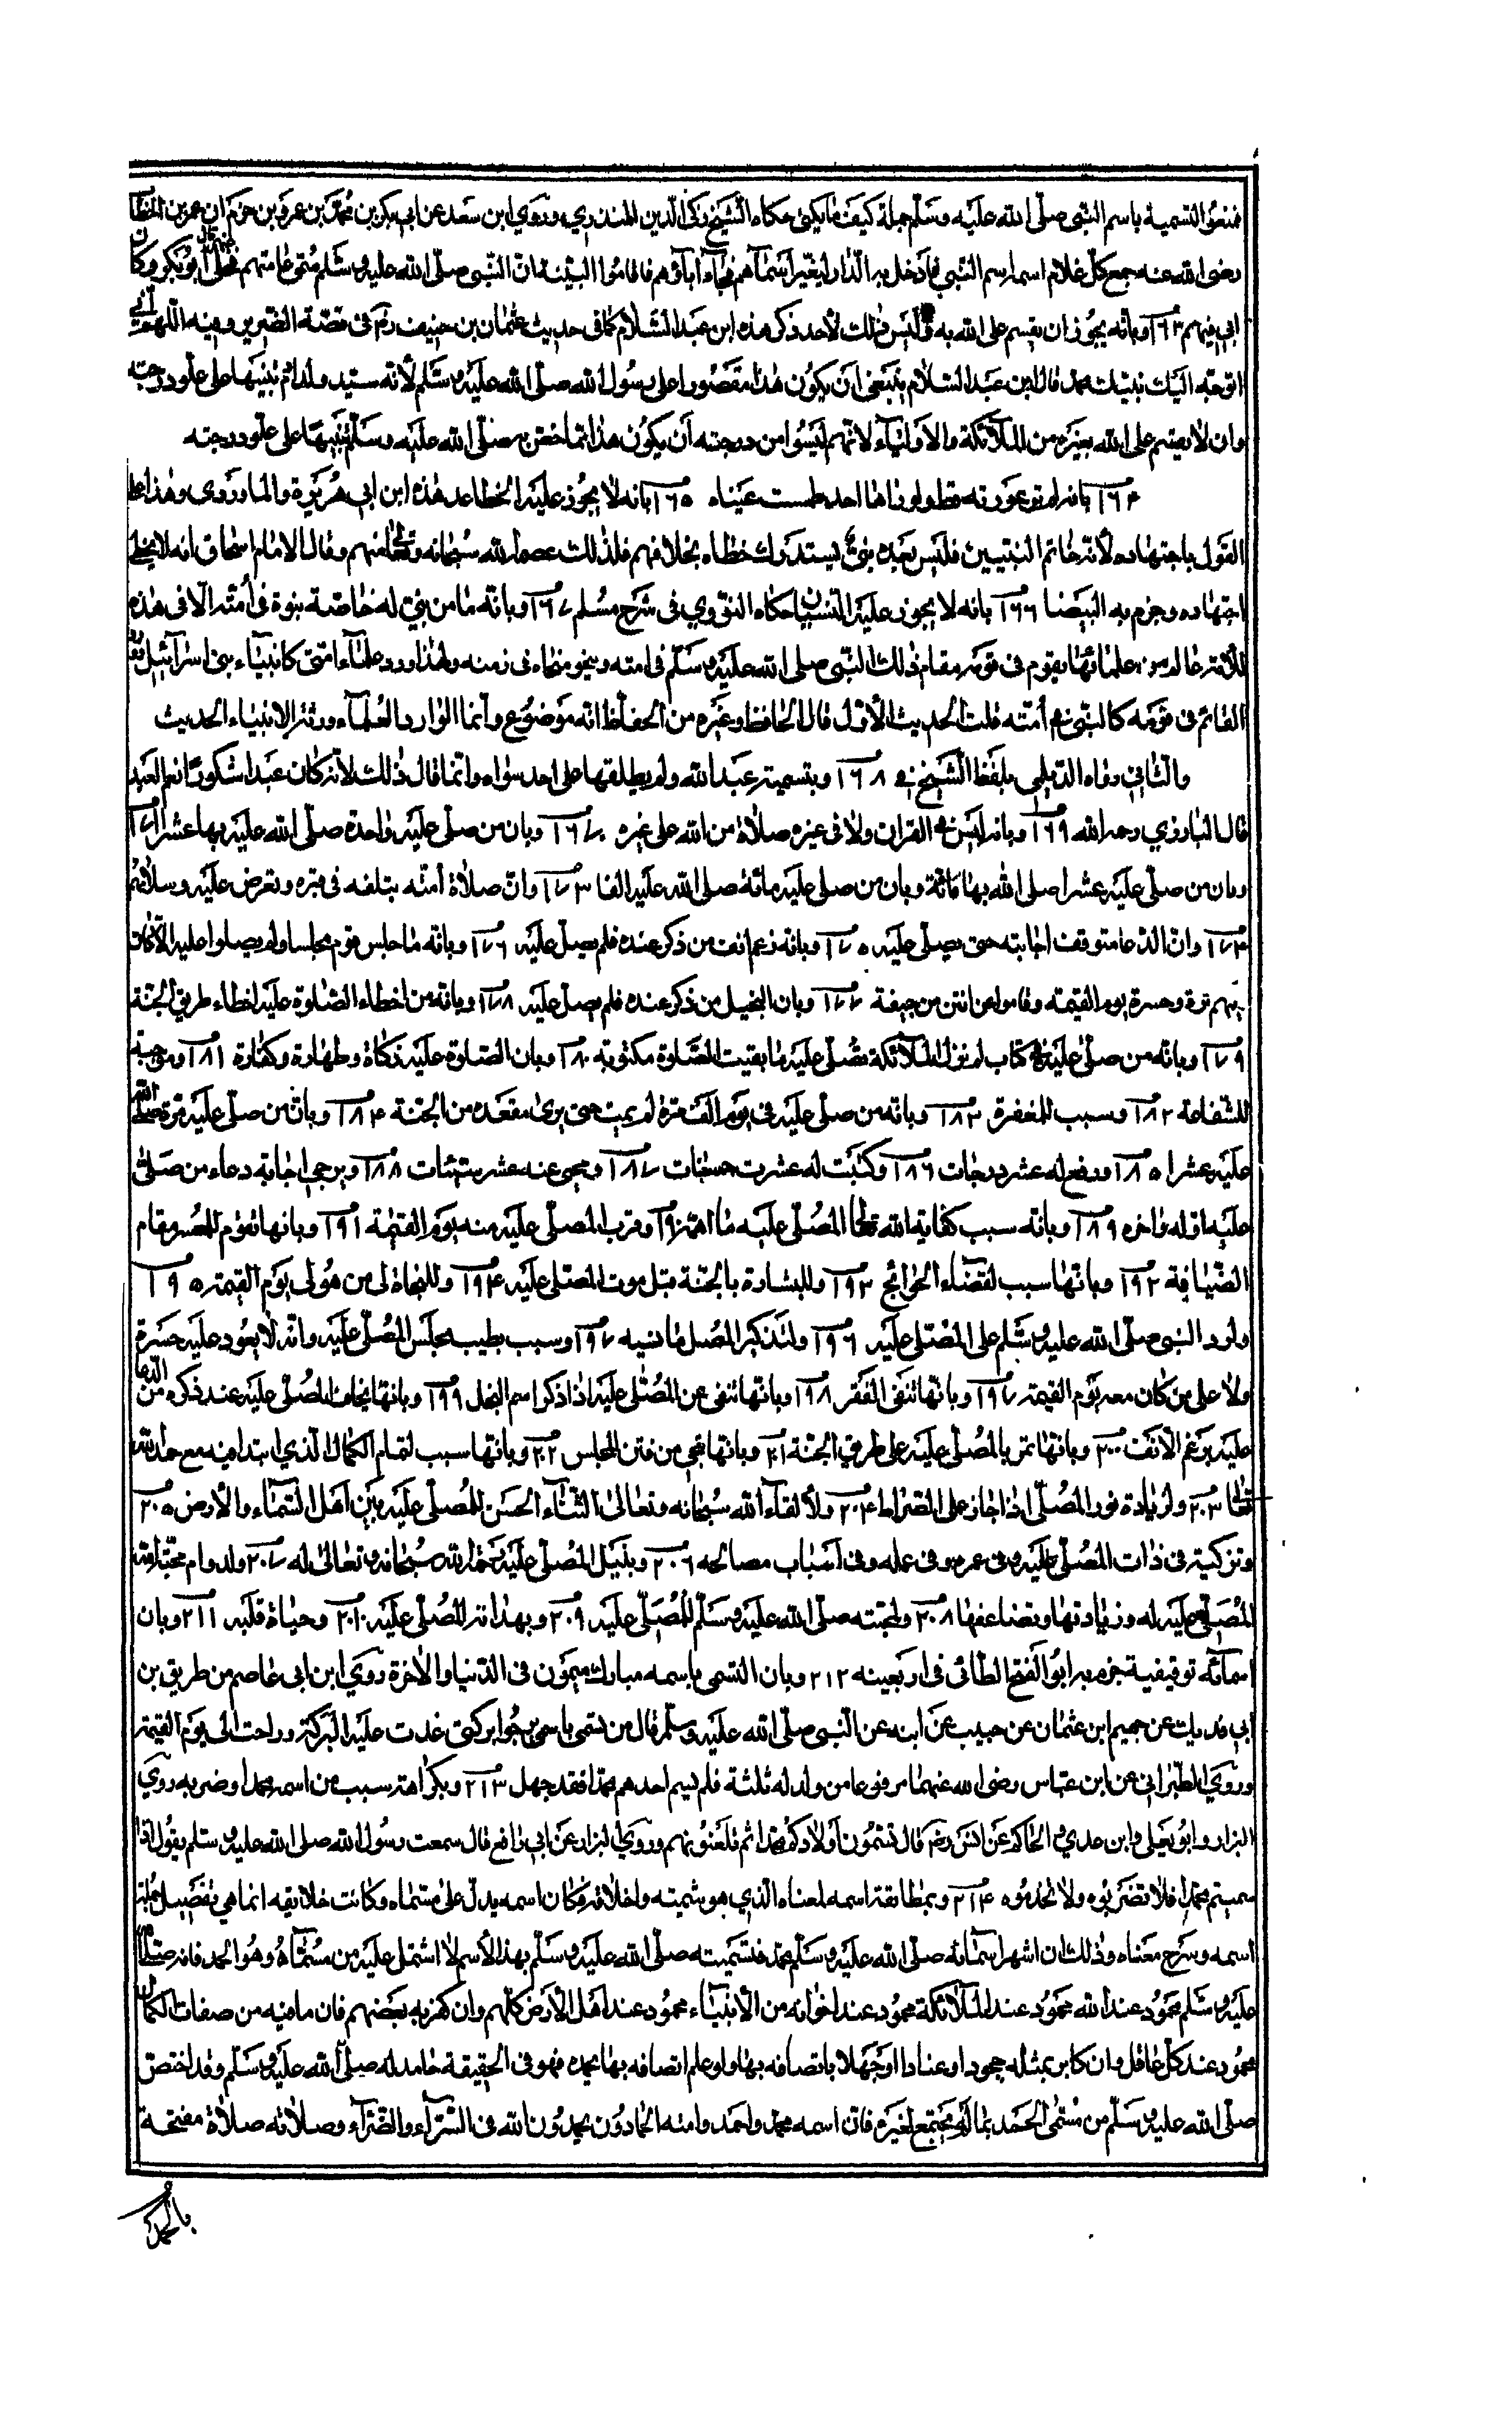 فمنعوا التسمية باسم النبي صلى الله عليه وسلم جملة كيف ما يكنى حكاه الشيخ زكي الدين المنذري وروى ابن سعد عن ابي بكر بن محمد بن عمرو بن حزم ان عمر بن الخطاب
رضى الله عنه جمع كل غلام اسمه اسم النبي فادخلهم الدار ليغير اسمآهم فجاء آباؤهم فاقاموا البينة ان النبي صلى الله عليه وسلم سمى عامتهم فخلى قال ابو بكر وكان
ابي فيهم ١٦٣ وبانه يجوز ان يقسم على الله به وليس ذلك لأحد ذكر هذه ابن عبد السلام كما في حديث عثمان بن حنيف رضم في قصة الضرير وفيه اللهم اني
اتوجه اليك بنبيك محمد قال ابن عبد السلام ينبغي ان يكون هذا مقصورا على رسول الله صلى الله عليه وسلم لأنه سيد ولد ادم تنبيها على علو درجته
وان لا يقسم على الله بغيره من الملآئكة والاوليآء لانهم ليسوا من درجته أن يكون هذا مما خص به صلى الله عليه وسلم تنبيها على علو درجته
١٦٤ بانه لم تر عورته قط ولو رأها احد طمست عيناه ١٦٥ بانه لا يجوز عليه الخطا عد هذه ابن ابي هريرة والماوردي وهذا على
القول باجتهاده لأنه خاتم النبيين فليس بعده نبي يستدرك خطاه بخلافهم فلذلك عصمه الله سبحانه وتعالى منهم وقال الامام اسحاق انه لا يخطي
اجتهاده وجزم به البيضا ١٦٦ بانه لا يجوز عليه النسيان حكاه النووي في شرح مسلم ١٦٧ وبانه ما من نبي له خاصة نبوة في أمته الا في هذه
للأمة عالم من علمائها يقوم في قومه مقام ذلك النبي صلى الله عليه وسلم في امته وينحو منحاه في زمنه ولهذا ورد علمآء امتى كانبيآء بني اسرآئيل وورد
القائم في قومه كالنبي في أمته قلت الحديث الأول قال الحافظ وغيره من الحفاظ انه موضوع وانما الوارد العلمآء ورثة الانبيآء الحديث
والثاني رواه الديلمي بلفظ الشيخ في ١٦٨ وبتسميته عبد الله ولم يطلقها على احد سواه وانما قال ذلك لانه كان عبدا شكورا نعم العبد
قال البارزي رحمه الله ١٦٩ وبانه ليس في القران ولا في غيره صلاة من الله على غيره ١٧٠ وبان من صلى عليه واحدة صلى الله عليه بها عشرا ١٧١
وبان من صلى عليه عشرا صلى الله بها مائة وبان من صلى عليه مائة صلى الله عليه الفا ١٧٣ وان صلاة أمته تبلغه في قبره وتعرض عليه وسلامهم
١٧٤ وان الدعا متوقف اجابته حتى يصلى عليه ١٧٥ وبانه رغم انف من ذكر عنده فلم يصل عليه ١٧٦ وبانه ما جلس قوم مجلسا ولم يصلوا عليه الا كان
عليهم ترة وحسرة يوم القيمة وقاموا عن انتن من جيفة ١٧٧ وبان البخيل من ذكر عنده فلم يصل عليه ١٧٨ وبانه من اخطاء الصلوة عليه اخطاء طريق الجنة
١٧٩ وبانه من صلى عليه في كتاب لم تزل الملآئكة تصلى عليه ما بقيت الصلوة مكتوبة ١٨٠ وبان الصلوة عليه زكاة وطهارة وكفارة ١٨١ وموجبة
للشفاعة ١٨٢ وسبب المغفرة ١٨٣ وبانه من صلى عليه في يوم الف مرة لم يمت حتى يرى مقعده من الجنة ١٨٤ وبان من صلى عليه مرة صلى الله
عليه عشرا ١٨٥ ورفع له عشر درجات ١٨٦ وكتبت له عشرت حسنات ١٨٧ ومحى عنه عشر سيئات ١٨٨ ويرجى اجابة دعاء من صلى
عليه اوله واخره ١٨٩ وبانه سبب كفاية الله تعالى المصلى عليه ما اهمه ١٩٠ وقرب المصلى عليه منه يوم القيمة ١٩١ وبانها تقوم للمعسر مقام
الضيافة ١٩٢ وبانها سبب لقضاء الحوائج ١٩٣ وللبشارة بالجنة قبل موت المصلى عليه ١٩٤ وللنجاة من هول يوم القيمة ١٩٥
ولرد النبي صلى الله عليه وسلم على المصلى عليه ١٩٦ ولتذكير المصلى ما نسيه ١٩٧ وسبب بطيب مجلس المصلى عليه وانه لا يعود عليه حسرة
ولا على من كان معه يوم القيمة ١٩٧ وبانها تنفى الفقر ١٩٨ وبانها تنفى عن المصلى عليه اذا ذكر اسم البخل ١٩٩ وبانها يخاف المصلى عليه عند ذكره من الدعا
عليه برغم الانف ٢٠٠ وبانها تمر بالمصلى عليه على طريق الجنة ٢٠١ وبانها تنجي من فتن المجالس ٢٠٢ وبانها سبب لتمام الكمال الذي ابتدا فيه مع حمد الله
تعالى ٢٠٣ ولزيادة نور المصلى اذا جاز على الصراط ٢٠٤ ولألقاء الله سبحانه وتعالى الثنآء الحسن للمصلى عليه بين أهل السمآء والأرض ٢٠٥
وتزكية في ذات المصلى عليه وفي عمره وفي عمله وفي اسباب مصالحه ٢٠٦ وبنيل المصلى عليه رحمة الله سبحانه وتعالى له ٢٠٧ ولدوام محبة
المصلى عليه له وزيادتها وتضاعفها ٢٠٨ ولمحبته صلى الله عليه وسلم للمصلى عليه ٢٠٩ وبهدايته للمصلى عليه ٢١٠ وحياة قلبه ٢١١ وبان
اسمآئه توقيفية جزم به ابو الفتح الطائى في اربعينه ٢١٢ وبان التسمى باسمه مبارك ميمون في الدنيا والاخرة روى ابن ابي عاصم من طريق بن
أبي فديك عن جهيم ابن عثمان عن حبيب عن ابنه عن النبي صلى الله عليه وسلم قال من تسمى باسمي يرجوا بركتي غدت عليه البركة وراحت الى يوم القيمة
وروى الطبراني عن ابن عباس رضى الله عنهما مرفوعا من ولد له ثلثة فلم يسم احدهم محمد افقد جهل ٢١٣ وبكراهة سبب من اسمه محمد اوضربه روى
البزار وابو يعلى وابن عدي والحاكم عن انس رضم قال تسمون أولادكم محمدا ثم تلعنونهم وروى البزار عن ابي رافع قال سمعت رسول الله صلى الله عليه وسلم يقول اذا
سميتم محمدا فلا تضربوه ولا تحرموه ٢١٤ وبمطابقة اسمه لمعناه الذي هو شميته واخلاقه فكان اسمه يدل على مسماه وكانت خلائقه انما هي تفصيل جملة
اسمه وشرح معناه وذلك ان اشهر اسمائه صلى الله عليه وسلم محمد فتسميته صلى الله عليه وسلم بهذا الأسم لما اشتمل عليه من مسماه وهو الحمد فانه صلى الله
عليه وسلم محمود عند الله محمود عند الملآئكة محمود عند اخوانه من الانبيآء محمود عند اهل الارض كلهم وان كفر به بعضهم فان ما فيه من صفات الكمال
محمود عند كل عاقل وان كابر بمثله جحودا وعنادا اوجهلا باتصافه بها ولو علم اتصافه بها يحمده فهو في الحقيقة حامد له صلى الله عليه وسلم وقد اختص
صلى الله عليه وسلم من مسمى الحمد بما لم يجتمع لغيره فان اسمه محمد واحمد وامته الحمادون يحمدون الله في السرآء والضرآء وصلاته صلاة مفتتحة
بالحمد